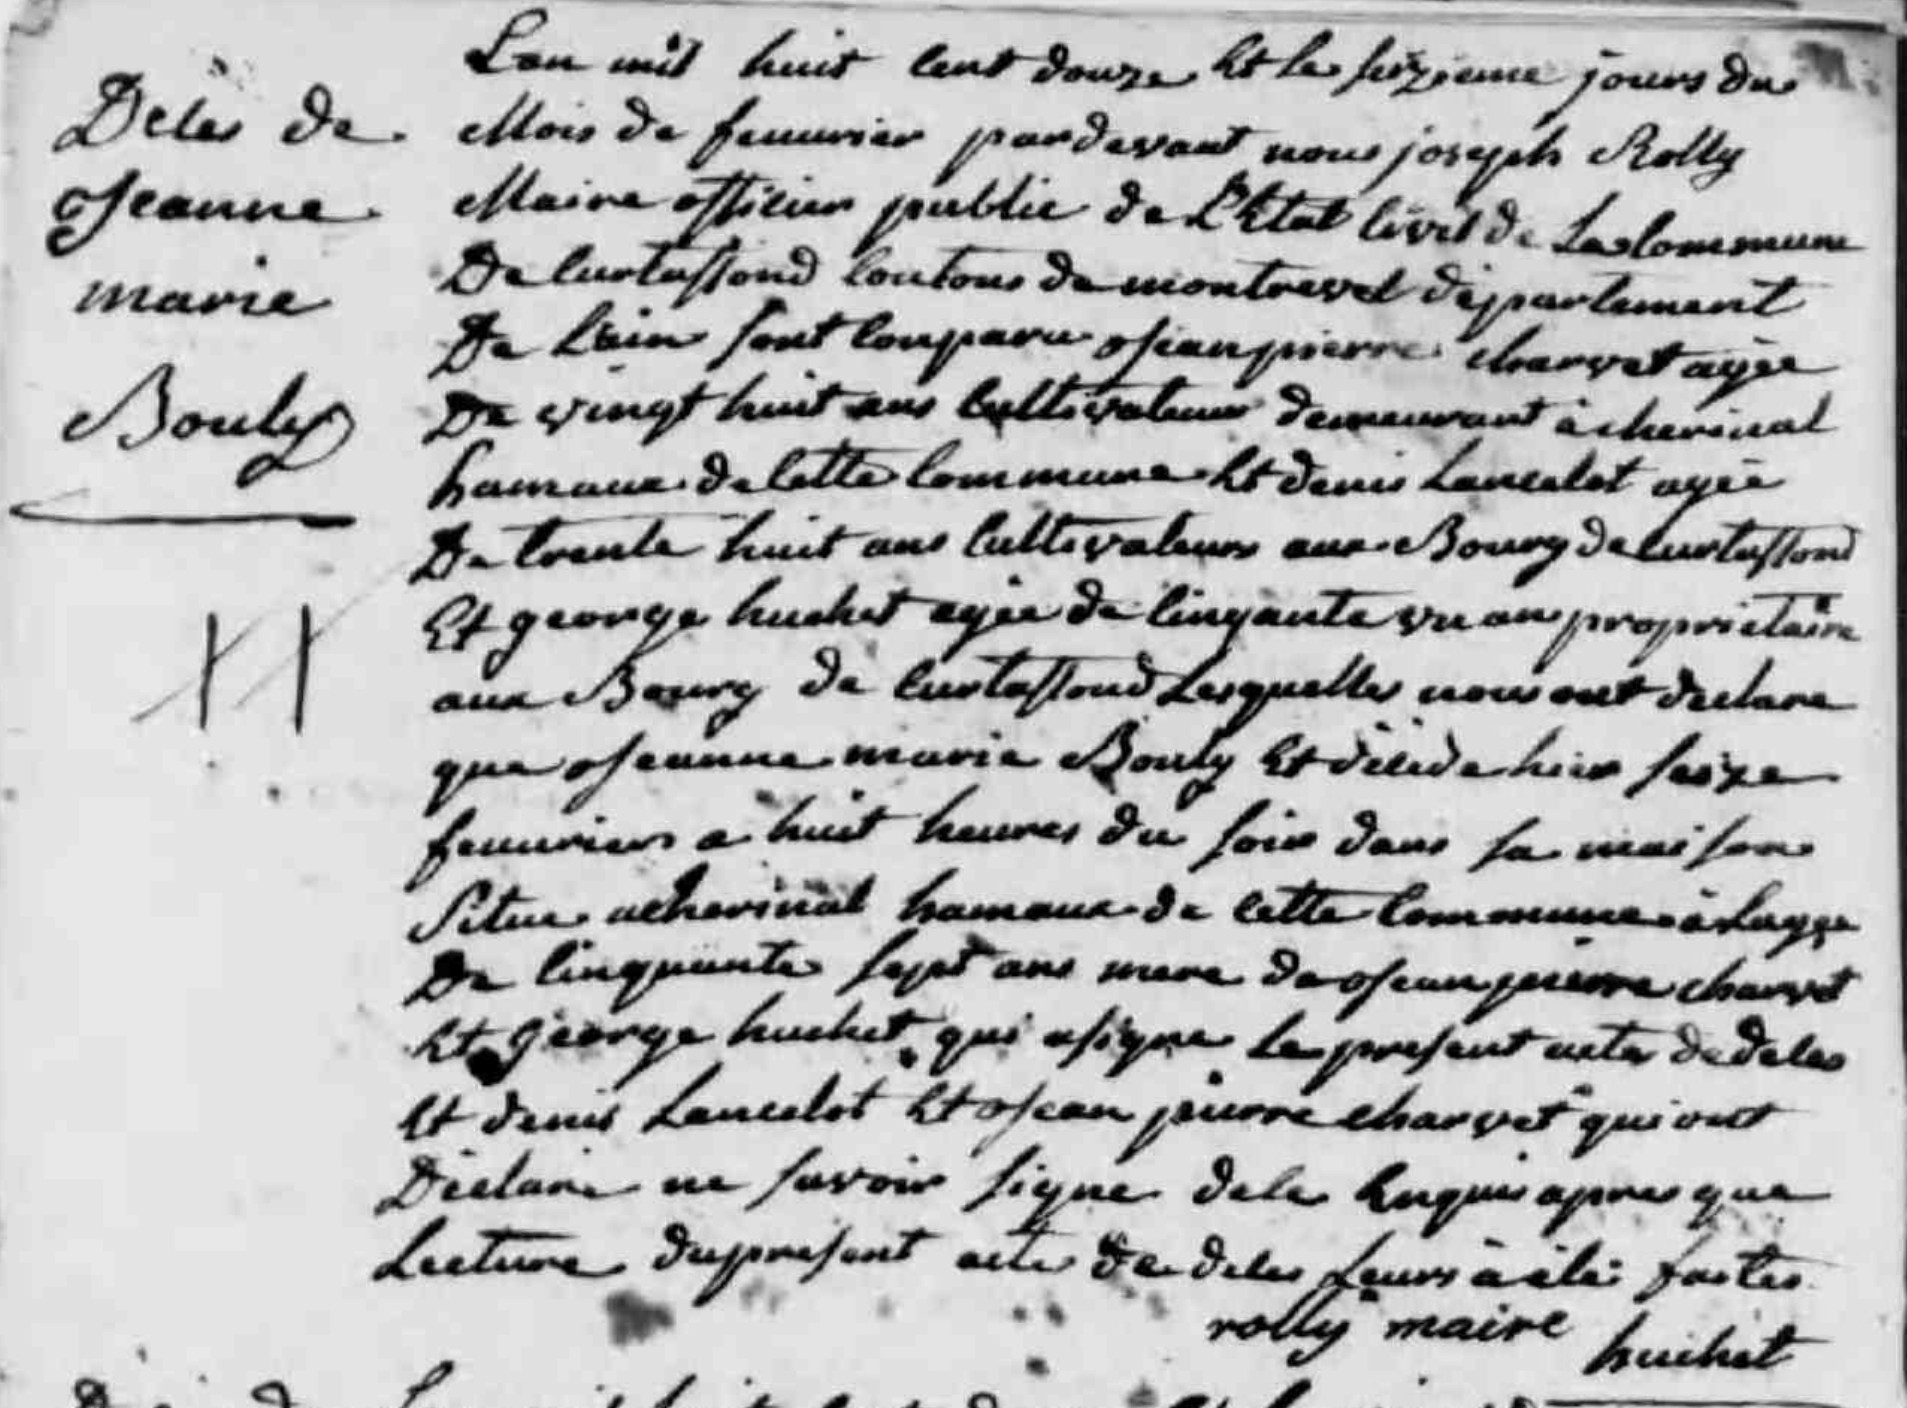 Deces de
Jeanne
marie
Bouly
Lan mil huit cent douze Et le seizieme jours du
Mois de feuvrier pardevant nous joseph Rolly
Maire officier public de L'Etat civil de La Commune
De Curtassond Contons de montrevel département
De L'ain sont Conparu Jean pierre charvet agée
De vingt huit ans Cultivateur demeurant à cherinal
hamaux de Cette Commune Et denis Lancelot agée
De trente huit ans Cultivateurs aux Bourg de Curtassond
Et george huchet agée de Cinqante un an propriétaire
aux Bourg de Curtassond Lesquelles nous ont declare
que Jeanne marie Bouly Et décéde hier seize
feuvriers a huit heures du soir dans sa maison
Situe acherinal hamaux de Cette Commune à Lagge
De Cinquante sept ans mere de Jean pierre charvet
Et George huchet qui a signe Le present acte de deces
Et denis Lancelot Et Jean pierre charvet qui ont
Déclare ne savoir signe dele Enquis apres que
Lecture du present acte de deces Leurs à été faites
rolly maire
huchet